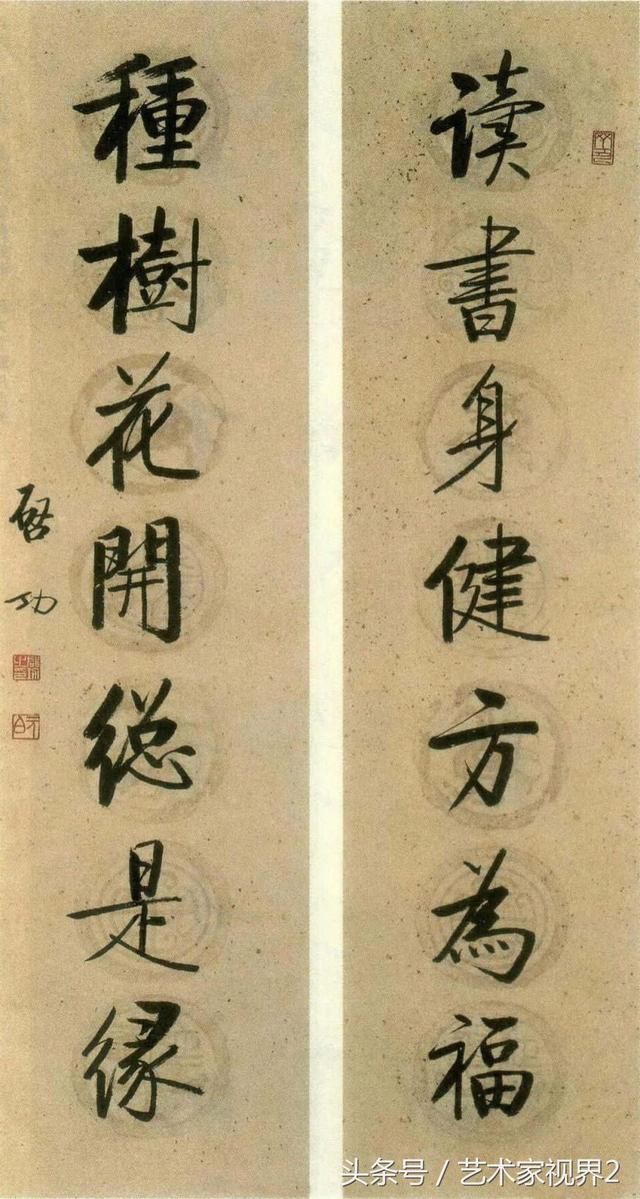 读書身健方為福
種樹花開總是緣
啓功
头条号 / 艺术家视界2